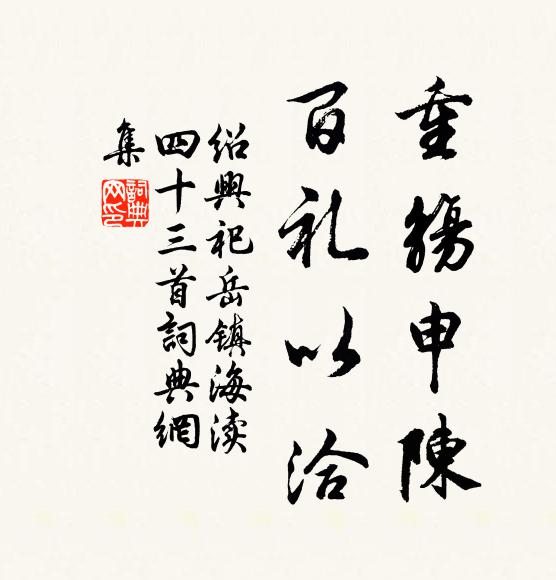 重觴申陳
百礼以洽
绍興祀岳鎮海渎
四十三首詞典網
集
詞典
网印